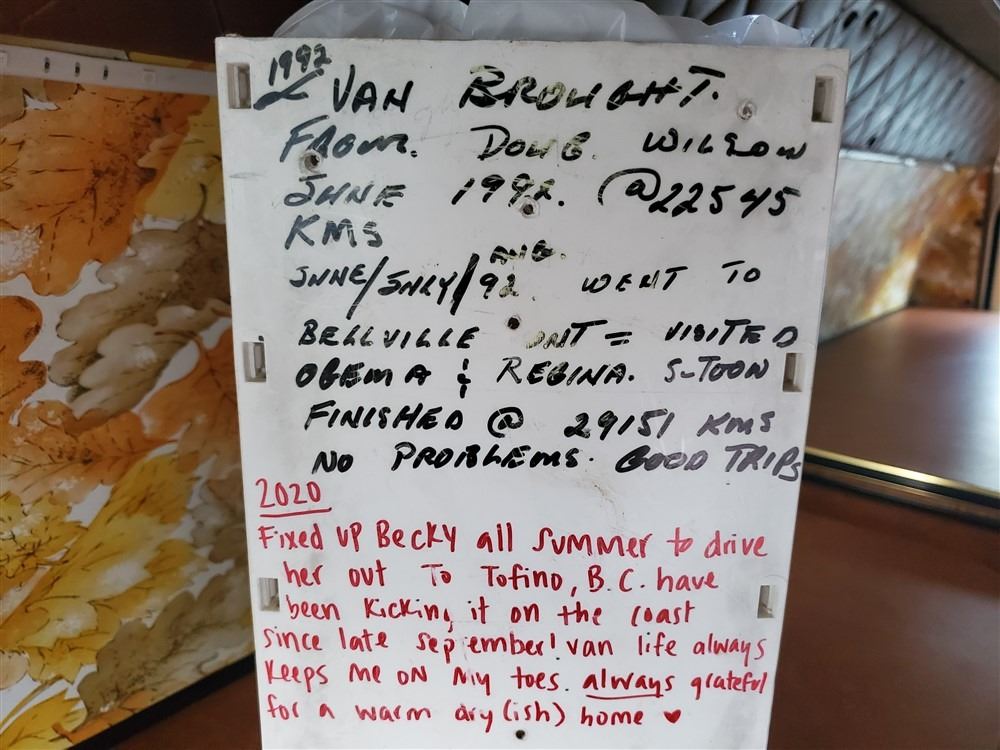 1992
VAN BROUGHT.
FROM. DOUG. WILSON
JUNE 1992. @22545
KMS
JUNE/JULY/AUG. 92. WENT TO
BELLVILLE ONT = VISITED
OGEMA & REGINA. S-TOON
FINISHED @ 29151 KMS
NO PROBLEMS. GOOD TRIPS
2020
Fixed UP Becky all summer to drive
her out To Tofino, B.C. have
been Kicking it on the coast
since late september! van life always
keeps me on my toes. always grateful
for a warm dry(ish) home ♥